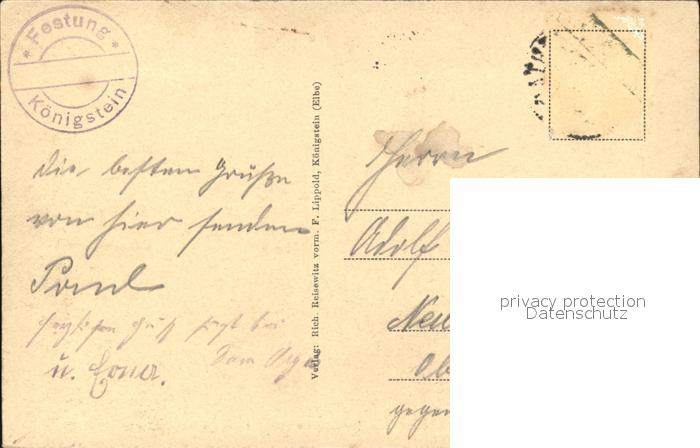 * Festung *
Königstein
die besten Grüße
von hier senden
Paul
herzlichen Gruß
u.
Verlag: Rich. Reisewitz vorm. F. Lippold, Königstein (Elbe)
Herrn
Adolf
Neu
Ob
gegen
privacy protection
Datenschutz